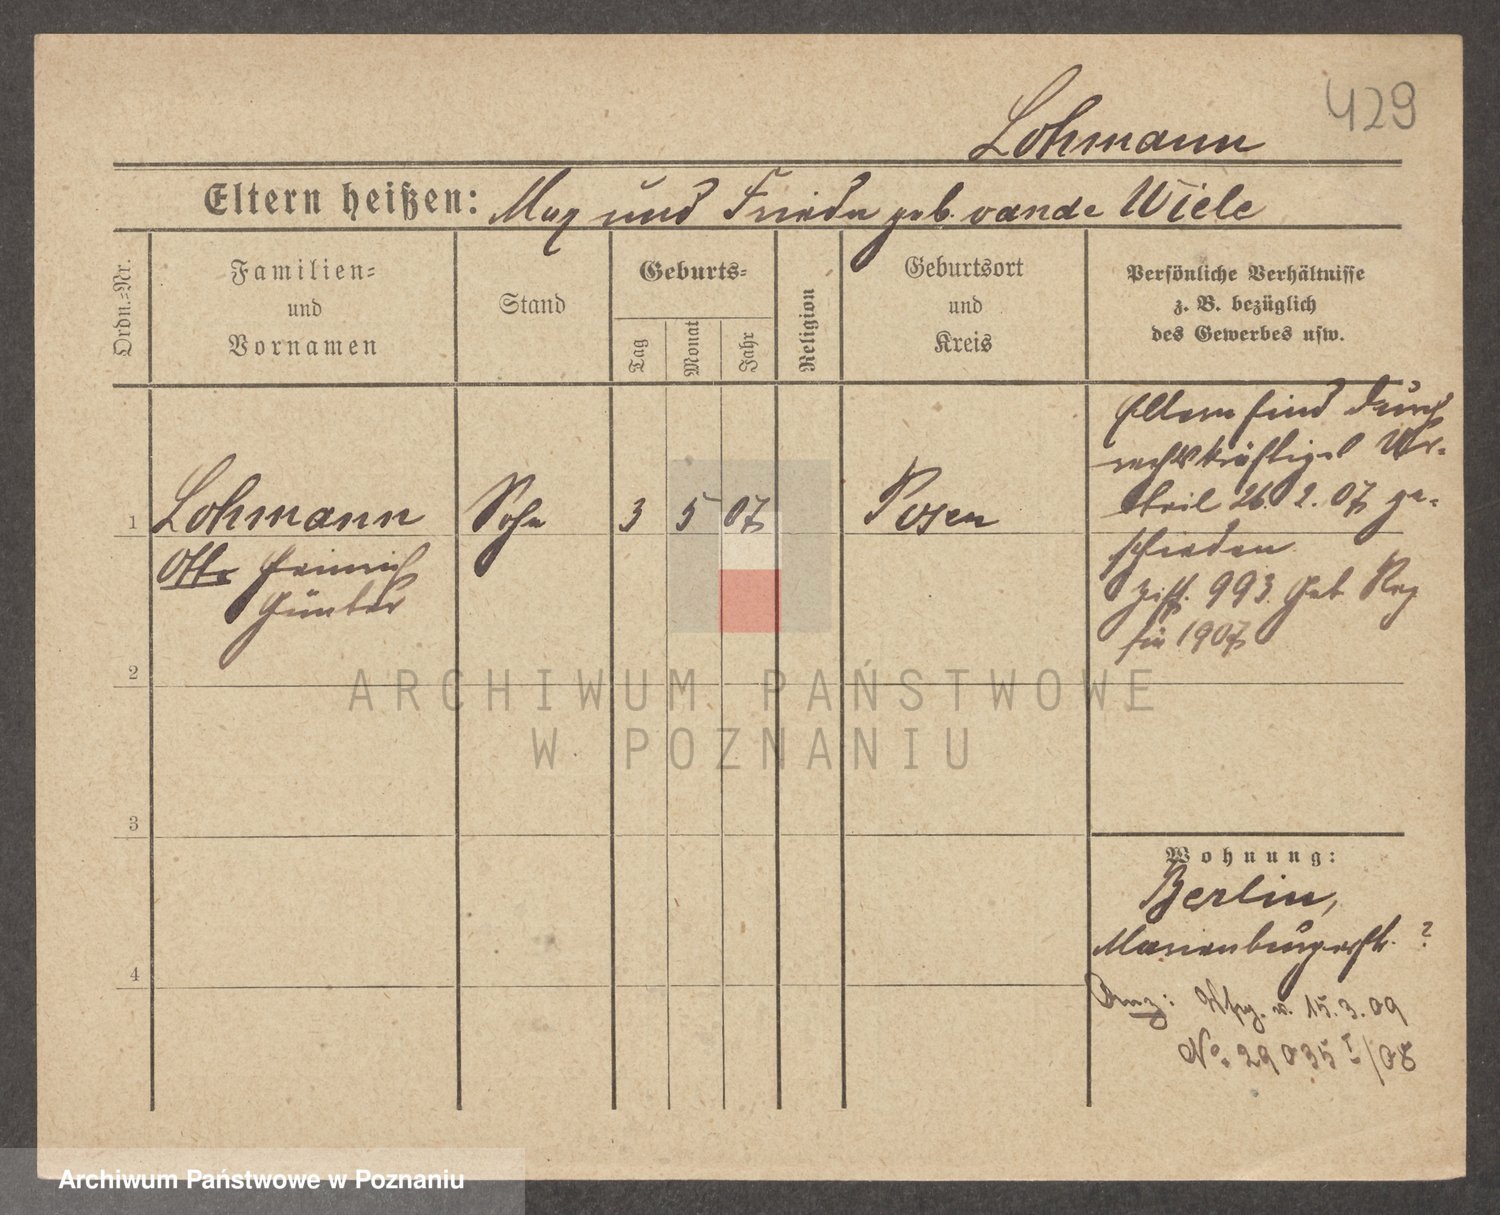 429
Lohmann
Eltern heißen: Max und Frieda geb. vande Wiele
Ordn.-Nr.
Familien-
und
Vornamen
Stand
Geburts-
Tag
Monat
Jahr
Religion
Geburtsort
und
Kreis
Persönliche Verhältnisse
z. B. bezüglich
des Gewerbes usw.
1 Lohmann Sohn 3 5 07 Posen
Otto Heinrich
Günter
Eltern sind durch
rechtskräftiges Ur-
theil 26. 2. 07 ge-
schieden
993 Geb Reg
für 1907
2
3
4
Wohnung:
Berlin,
Marienburgerstr. ?
v. 15.3.09
No. 29035 I/08
ARCHIWUM PAŃSTWOWE
W POZNANIU
Archiwum Państwowe w Poznaniu